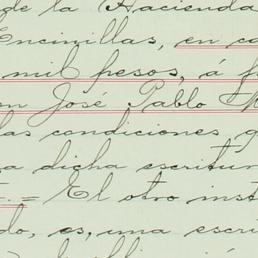 de la Hacienda
Encinillas, en ca
mil pesos, á f
on José Pablo
las condiciones q
a dicha escritur
= El otro inst
do, es, una escri